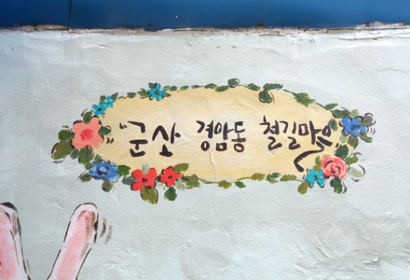 "군산 경암동 철길마을